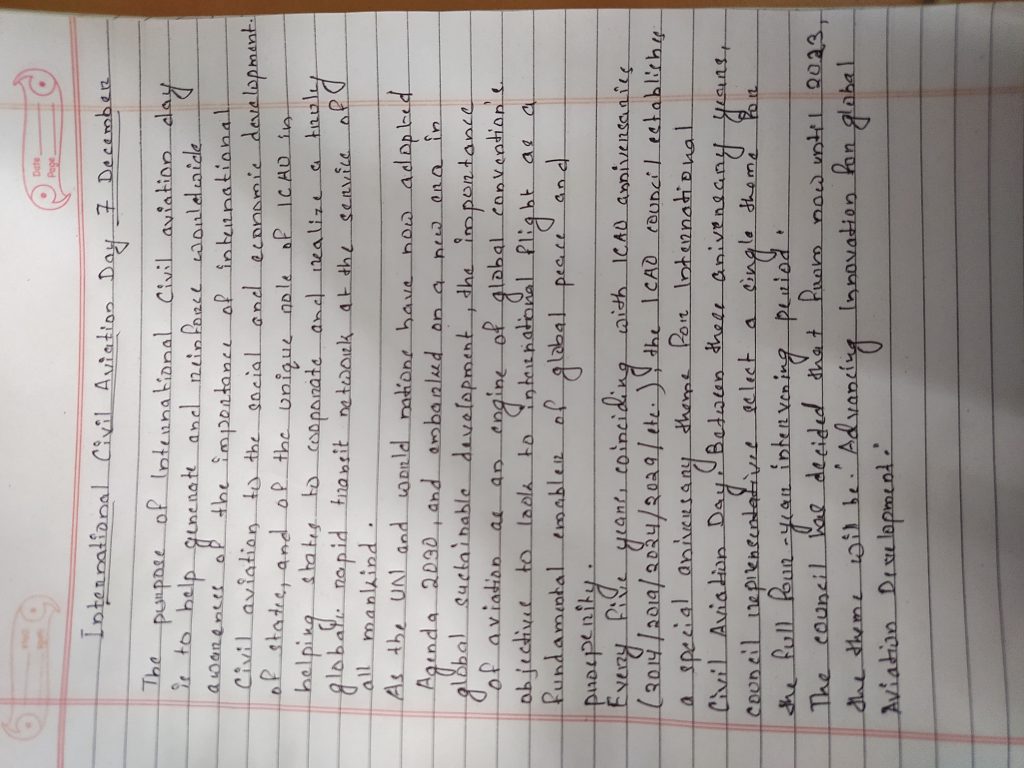 Date
Page
International Civil Aviation Day 7 December
The purpose of International Civil aviation day
is to help generate and reinforce worldwide
awareness of the importance of international
Civil aviation to the social and economic development
of states, and of the unique role of ICAO in
helping states to cooperate and realize a truly
global rapid transit network at the service of
all mankind.
As the UN and world nations have now adopted
Agenda 2030, and embarked on a new era in
global sustainable development, the importance
of aviation as an engine of global convention's
objective to look to International flight as a
fundamental enabler of global peace and
prosperity.
Every five years, coinciding with ICAO anniversaries
(2014/2019/2024/2029/etc.), the ICAO council establishes
a special anniversary theme for International
Civil Aviation Day. Between these anivereary years,
council representatives select a single theme for
the full four-year intervening period.
The council has decided that from now until 2023,
the theme will be: "Advancing Innovation for global
Aviation Development."